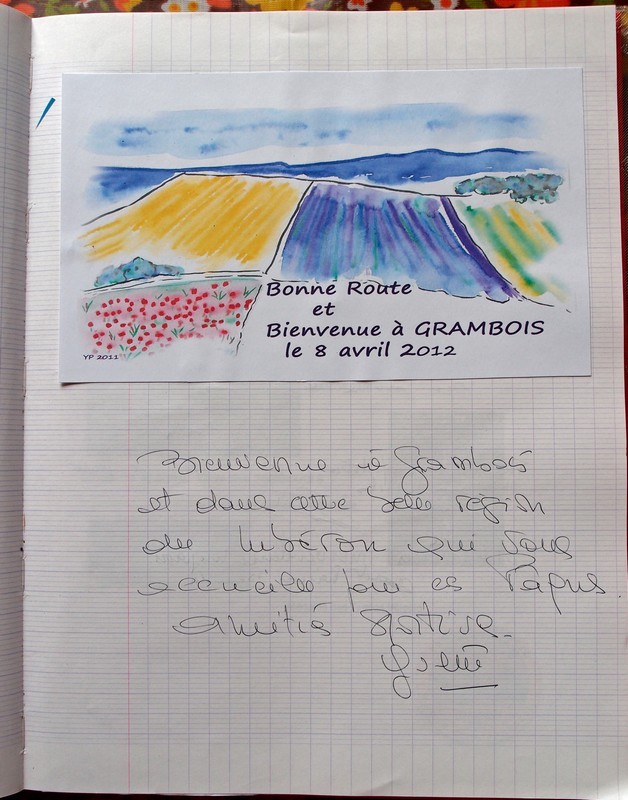 Bonne Route
et
Bienvenue à GRAMBOIS
le 8 avril 2012
YP 2011
Bienvenue à Grambois
et dans cette belle région
du Lubéron qui vous
accueille pour ces Pâques
amitiés sportives